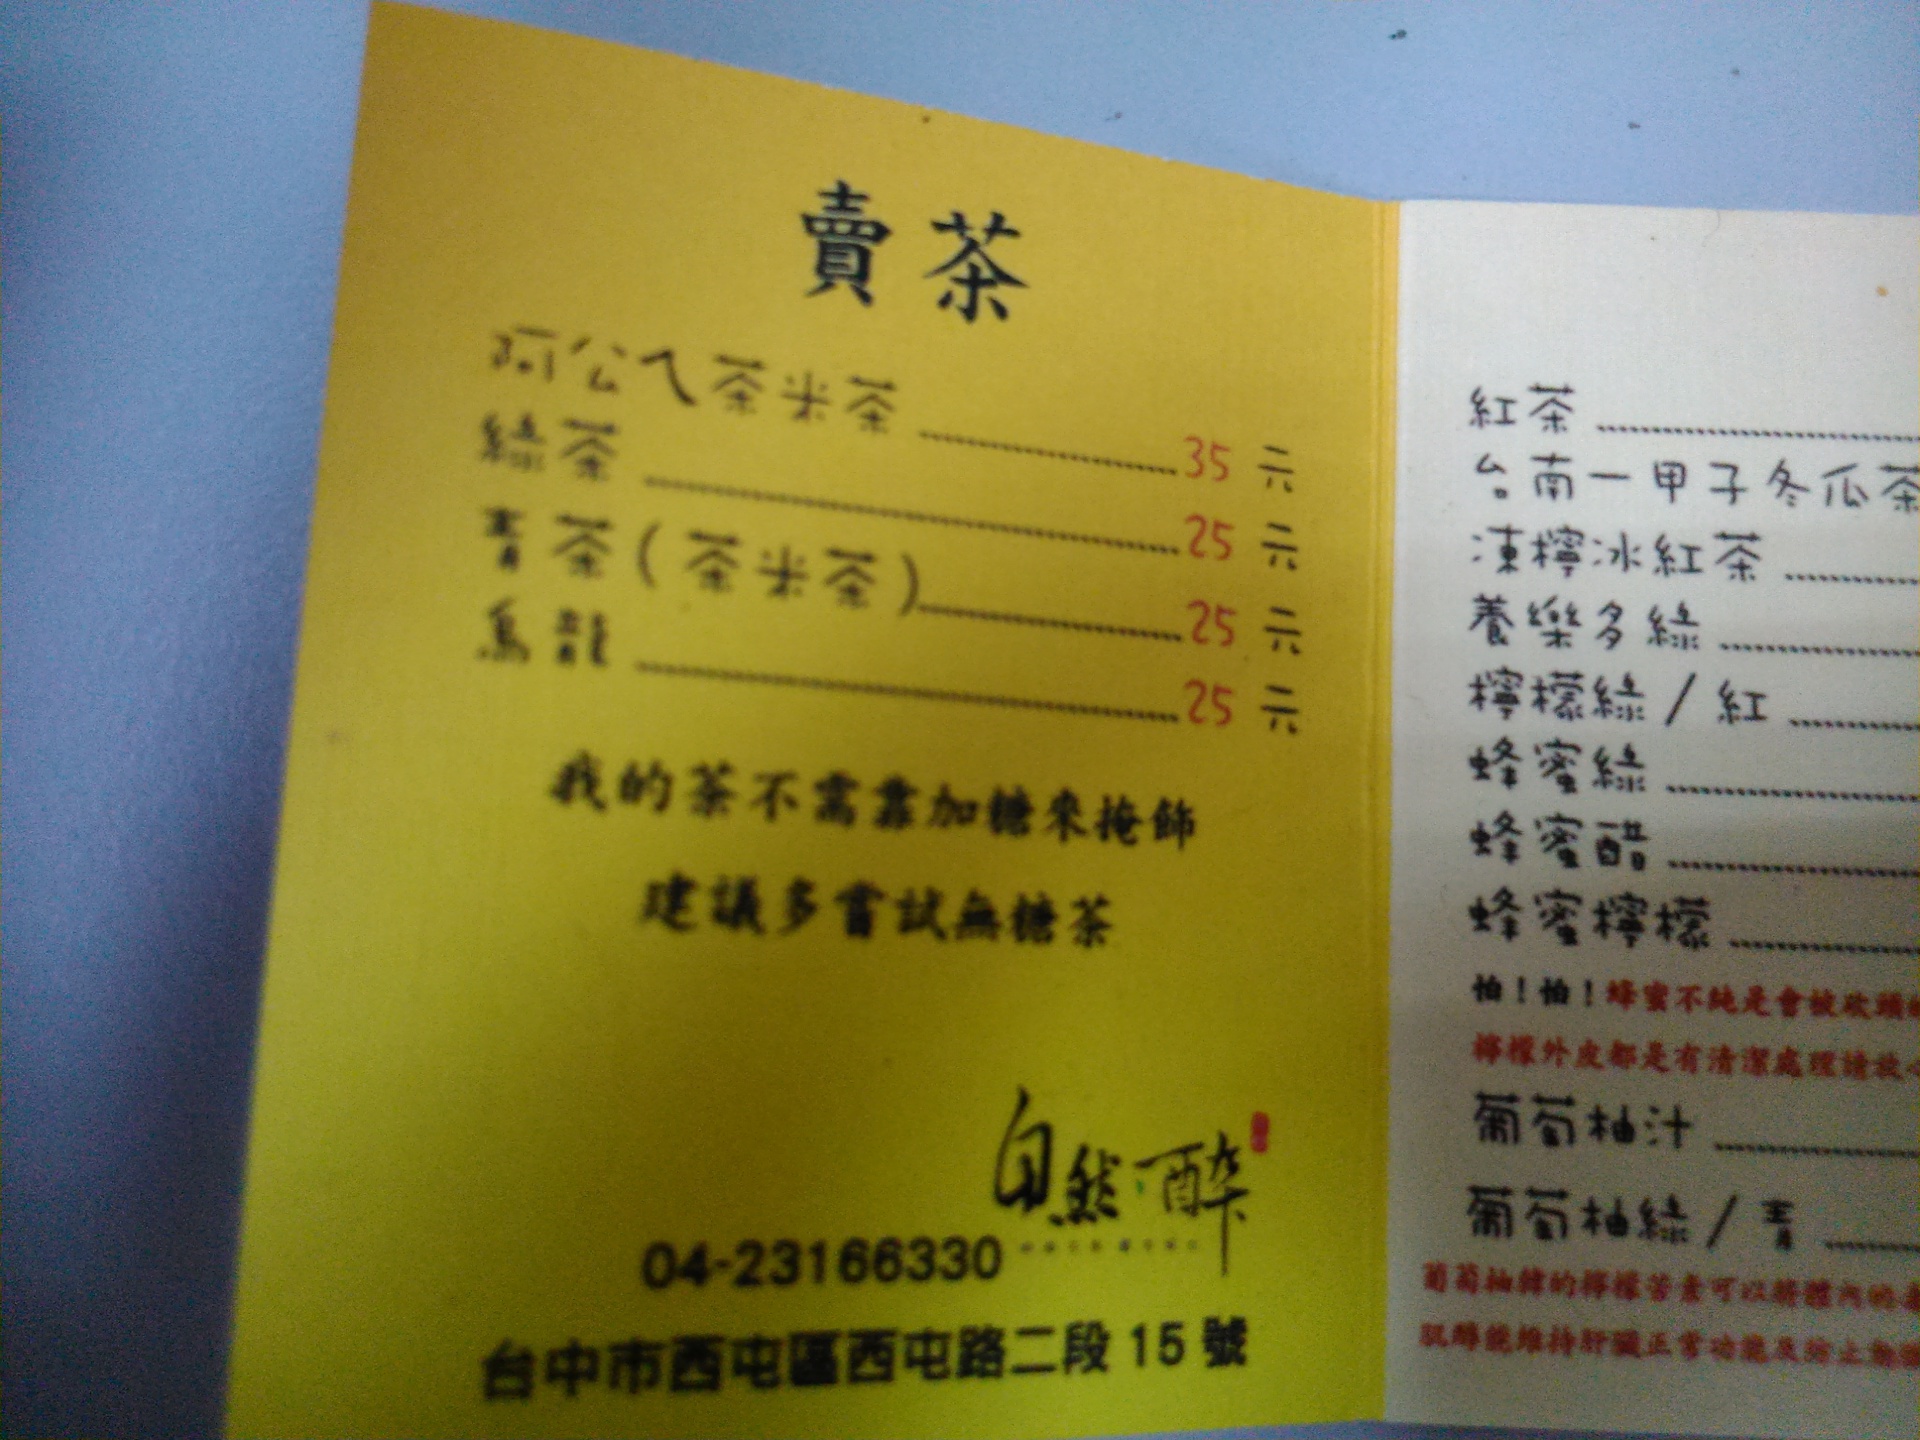 賣茶
阿公ㄟ茶米茶 35 元
綠茶 25 元
青茶(茶米茶) 25 元
烏龍 25 元
我的茶不需靠加糖來掩飾
建議多嘗試無糖茶
自然醉
04-23166330
台中市西屯區西屯路二段 15 號
紅茶
台南一甲子冬瓜茶
凍檸冰紅茶
養樂多綠
檸檬綠/紅
蜂蜜綠
蜂蜜醋
蜂蜜檸檬
怕!怕!蜂蜜不純是會被砍頭
檸檬外皮都是有清潔處理請放
葡萄柚汁
葡萄柚綠/青
葡萄柚韓的檸檬苦素可以將體內的
肌醇能維持肝臟正常功能及防止動